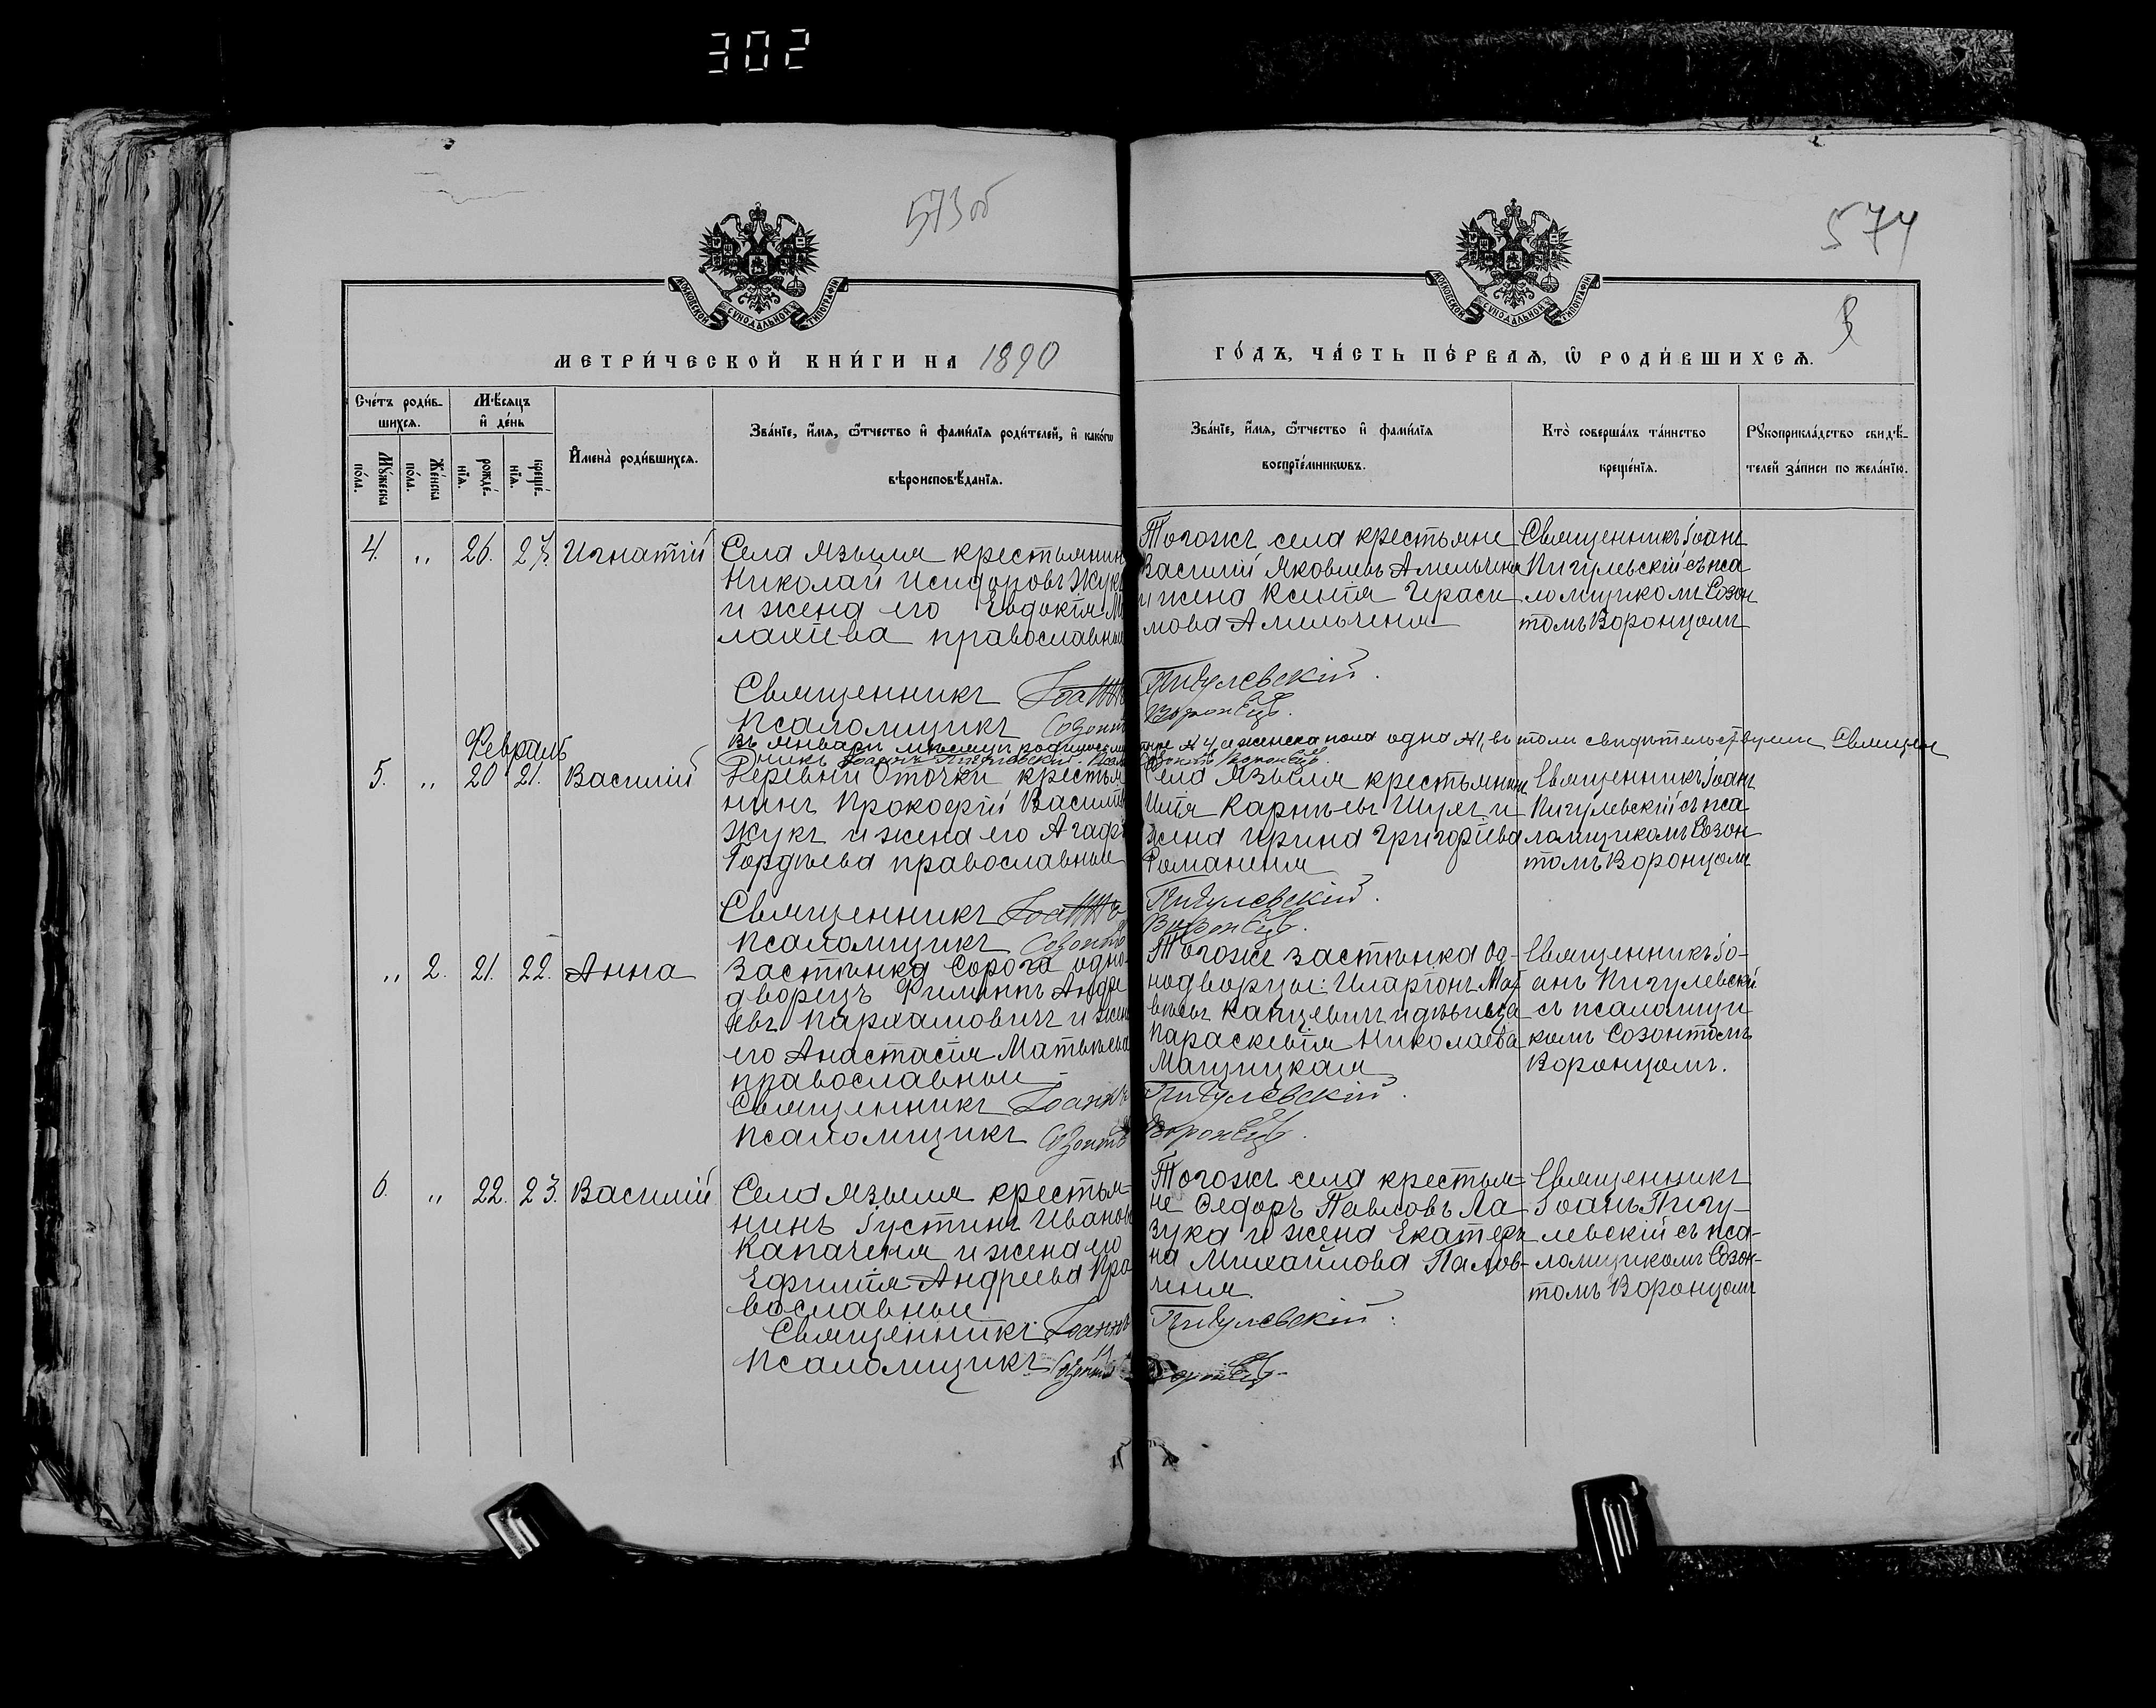 302
573об
574
3
МОСКОВСКОЙ СѴНОДАЛЬНОЙ ТИПОГРАФІИ
МОСКОВСКОЙ СѴНОДАЛЬНОЙ ТИПОГРАФІИ
МЕТРИ́ЧЕСКОЙ КНИ́ГИ НА 1890
ГО́ДЪ, ЧА́СТЬ ПЕ́РВАѦ, Ѿ РОДИ́ВШИХСѦ.
Сче́тъ роди́в-
шихсѧ.
Мꙋ́жеска по́ла.
Же́нска по́ла.
Мѣ́сѧцъ и҆ де́нь
рожде́-
нїѧ.
креще́-
нїѧ.
И҆мена̀ роди́вшихсѧ.
Зва́нїе, и҆́мѧ, ѻ҆́тчество и҆ фами́лїѧ роди́телей, и҆ како́гѡ
вѣроисповѣ́данїѧ.
Зва́нїе, и҆́мѧ, ѻ҆́тчество и҆ фами́лїѧ
воспрїе́мникѡвъ.
Кто̀ соверша́лъ та́инство
креще́нїѧ.
Рꙋкоприкла́дство свидѣ́-
телей за́писи по жела́нїю.
4. „ 26. 27. Игнатій
Села Языля крестьянин
Николай Исидоровъ Жукъ
и жена его Евдокія М
лахіева православныи
Тогожъ села крестьяне
Василій Яковлевъ Амельченя
и жена Ксенія Гераси
мова Амельченя
Священникъ Іоанн
Пигулевскій съ пса
ломщикомъ Созон
томъ Воронцомъ
Священникъ Іоаннъ Пигулевскій.
Псаломщикъ Созонт Воронецъ.
Въ январѣ мѣсяцѣ родившихся № 4, а женска пола одна №1, въ томъ свидѣтельствуемъ Священ
никъ Іоаннъ Пигулевскій. Псал Созонтъ Воронецъ.
Февраль
5. „ 20 21. Василій
Деревни Оточки крестья
нинъ Прокофій Василь
Жукъ и жена его Агафі
Гордѣева православныи
Села Языля крестьянинъ
Илія Карнѣевъ Шуляг и
жена Ирина Григоріева
Романеня
Священникъ Іоанн
Пигулевскій съ пса
ломщикомъ Созон
томъ Воронцомъ
Священникъ Іоаннъ Пигулевскій.
Псаломщикъ Созонтъ Воронецъ.
„ 2. 21. 22. Анна
Застѣнка Сорога одно-
дворецъ Филиппъ Андре
евъ Пархамовичъ и жен
его Анастасія Матвѣева
православныи
Тогоже застѣнка од-
нодворцы: Иларіонъ Мат
вѣевъ Канцевичъ и дѣвица
Параскевія Николаева
Мащицкая
Священникъ Іо-
анъ Пигулевскій
съ псаломщи
комъ Созонтомъ
Воронцомъ.
Священникъ Іоаннъ Пигулевскій.
Псаломщикъ Созонтъ Воронецъ.
6. „ 22. 23. Василій
Села Языля крестья-
нинъ Іустинъ Иванов
Капаченя и жена его
Ефимія Андреева Пра
вославныи
Тогожъ села крестья-
не Ѳедоръ Павловъ Ла
зука и жена Екатери
на Михайлова Палов-
ченя.
Священникъ
Іоанъ Пигу-
левскій съ пса-
ломщикомъ Созон-
томъ Воронцомъ
Священникъ Іоаннъ Пигулевскій.
Псаломщикъ Созонтъ Воронецъ